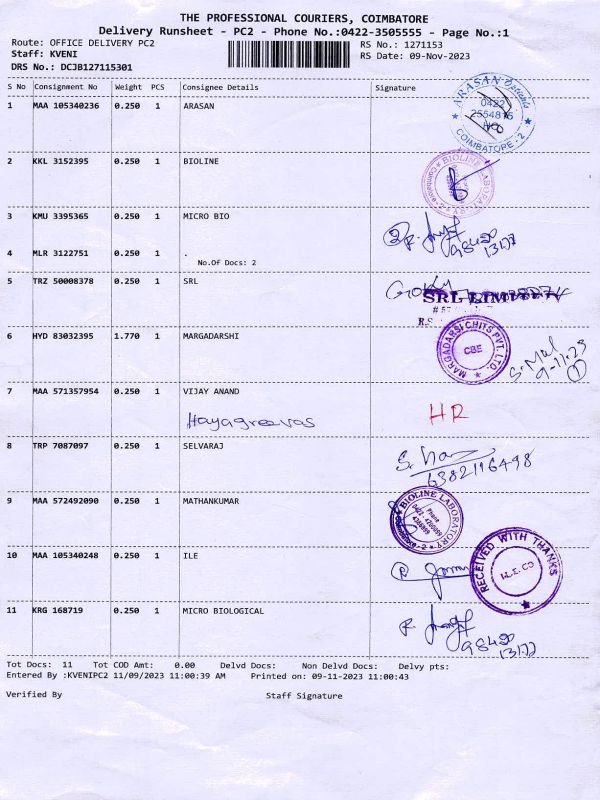 THE PROFESSIONAL COURIERS, COIMBATORE
Delivery Runsheet - PC2 - Phone No.:0422-3505555 - Page No.:1
Route: OFFICE DELIVERY PC2
RS No.: 1271153
Staff: KVENI
RS Date: 09-Nov-2023
DRS No.: DCJB127115301
S No Consignment No Weight PCS Consignee Details Signature
1 MAA 105340236 0.250 1 ARASAN
ARASAN Opticals
0422
2554816
COIMBATORE - 2
2 KKL 3152395 0.250 1 BIOLINE
BIOLINE LABORATORY
3 KMU 3395365 0.250 1 MICRO BIO
98420
13177
4 MLR 3122751 0.250 1 .
No.Of Docs: 2
5 TRZ 50008378 0.250 1 SRL
SRL LIMITED
6 HYD 83032395 1.770 1 MARGADARSHI
MARGADARSI CHITS PVT. LTD.
CBE
9-11-23
7 MAA 571357954 0.250 1 VIJAY ANAND
Hayagreevas
HR
8 TRP 7087097 0.250 1 SELVARAJ
6382116498
9 MAA 572492090 0.250 1 MATHANKUMAR
BIOLINE LABORATORY
Phone
10 MAA 105340248 0.250 1 ILE
RECEIVED WITH THANKS
11 KRG 168719 0.250 1 MICRO BIOLOGICAL
98420
13177
Tot Docs: 11 Tot COD Amt: 0.00 Delvd Docs: Non Delvd Docs: Delvy pts:
Entered By :KVENIPC2 11/09/2023 11:00:39 AM Printed on: 09-11-2023 11:00:43
Verified By Staff Signature